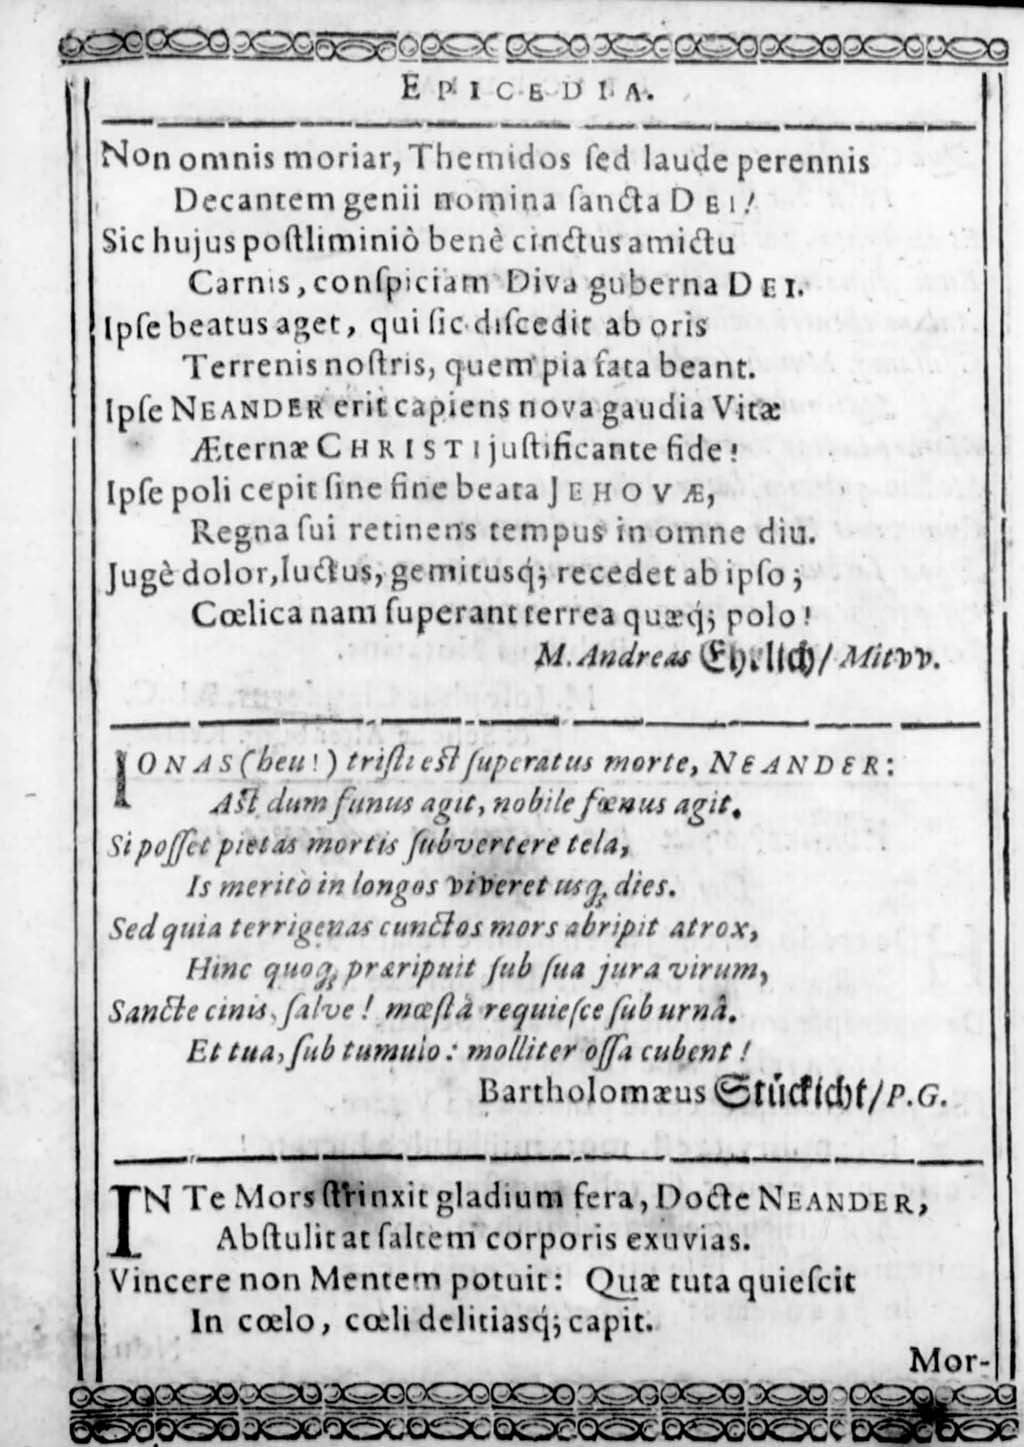 EPICEDIA.
Non omnis moriar, Themidos ſed laude perennis
Decantem genii nomina ſancta DEI!
Sic hujus poſtliminiò benè cinctus amictu
Carnis, conſpiciam Diva guberna DEI.
Ipſe beatus aget, qui ſic diſcedit ab oris
Terrenis noſtris, quem pia fata beant.
Ipſe NEANDER erit capiens nova gaudia Vitæ
Æternæ CHRISTI juſtificante fide!
Ipſe poli cepit ſine fine beata JEHOVÆ,
Regna ſui retinens tempus in omne diu.
Jugè dolor, luctus, gemitusq́; recedet ab ipſo;
Cœlica nam ſuperant terrea quæq́; polo!
M. Andreas Ehrlich/ Mitvv.
IONAS (heu!) triſti eſt ſuperatus morte, NEANDER:
Aſt dum funus agit, nobile fœnus agit.
Si poſſet pietas mortis ſubvertere tela,
Is meritò in longos viveret usq; dies.
Sed quia terrigenas cunctos mors abripit atrox,
Hinc quoq; præripuit ſub ſua jura virum,
Sancte cinis, ſalve! mœſtà requieſce ſub urnâ.
Et tua, ſub tumulo: molliter oſſa cubent!
Bartholomæus Stúckicht/ P.G.
IN Te Mors ſtrinxit gladium fera, Docte NEANDER,
Abſtulit at ſaltem corporis exuvias.
Vincere non Mentem potuit: Quæ tuta quieſcit
In cœlo, cœli delitiasq́; capit.
Mor-